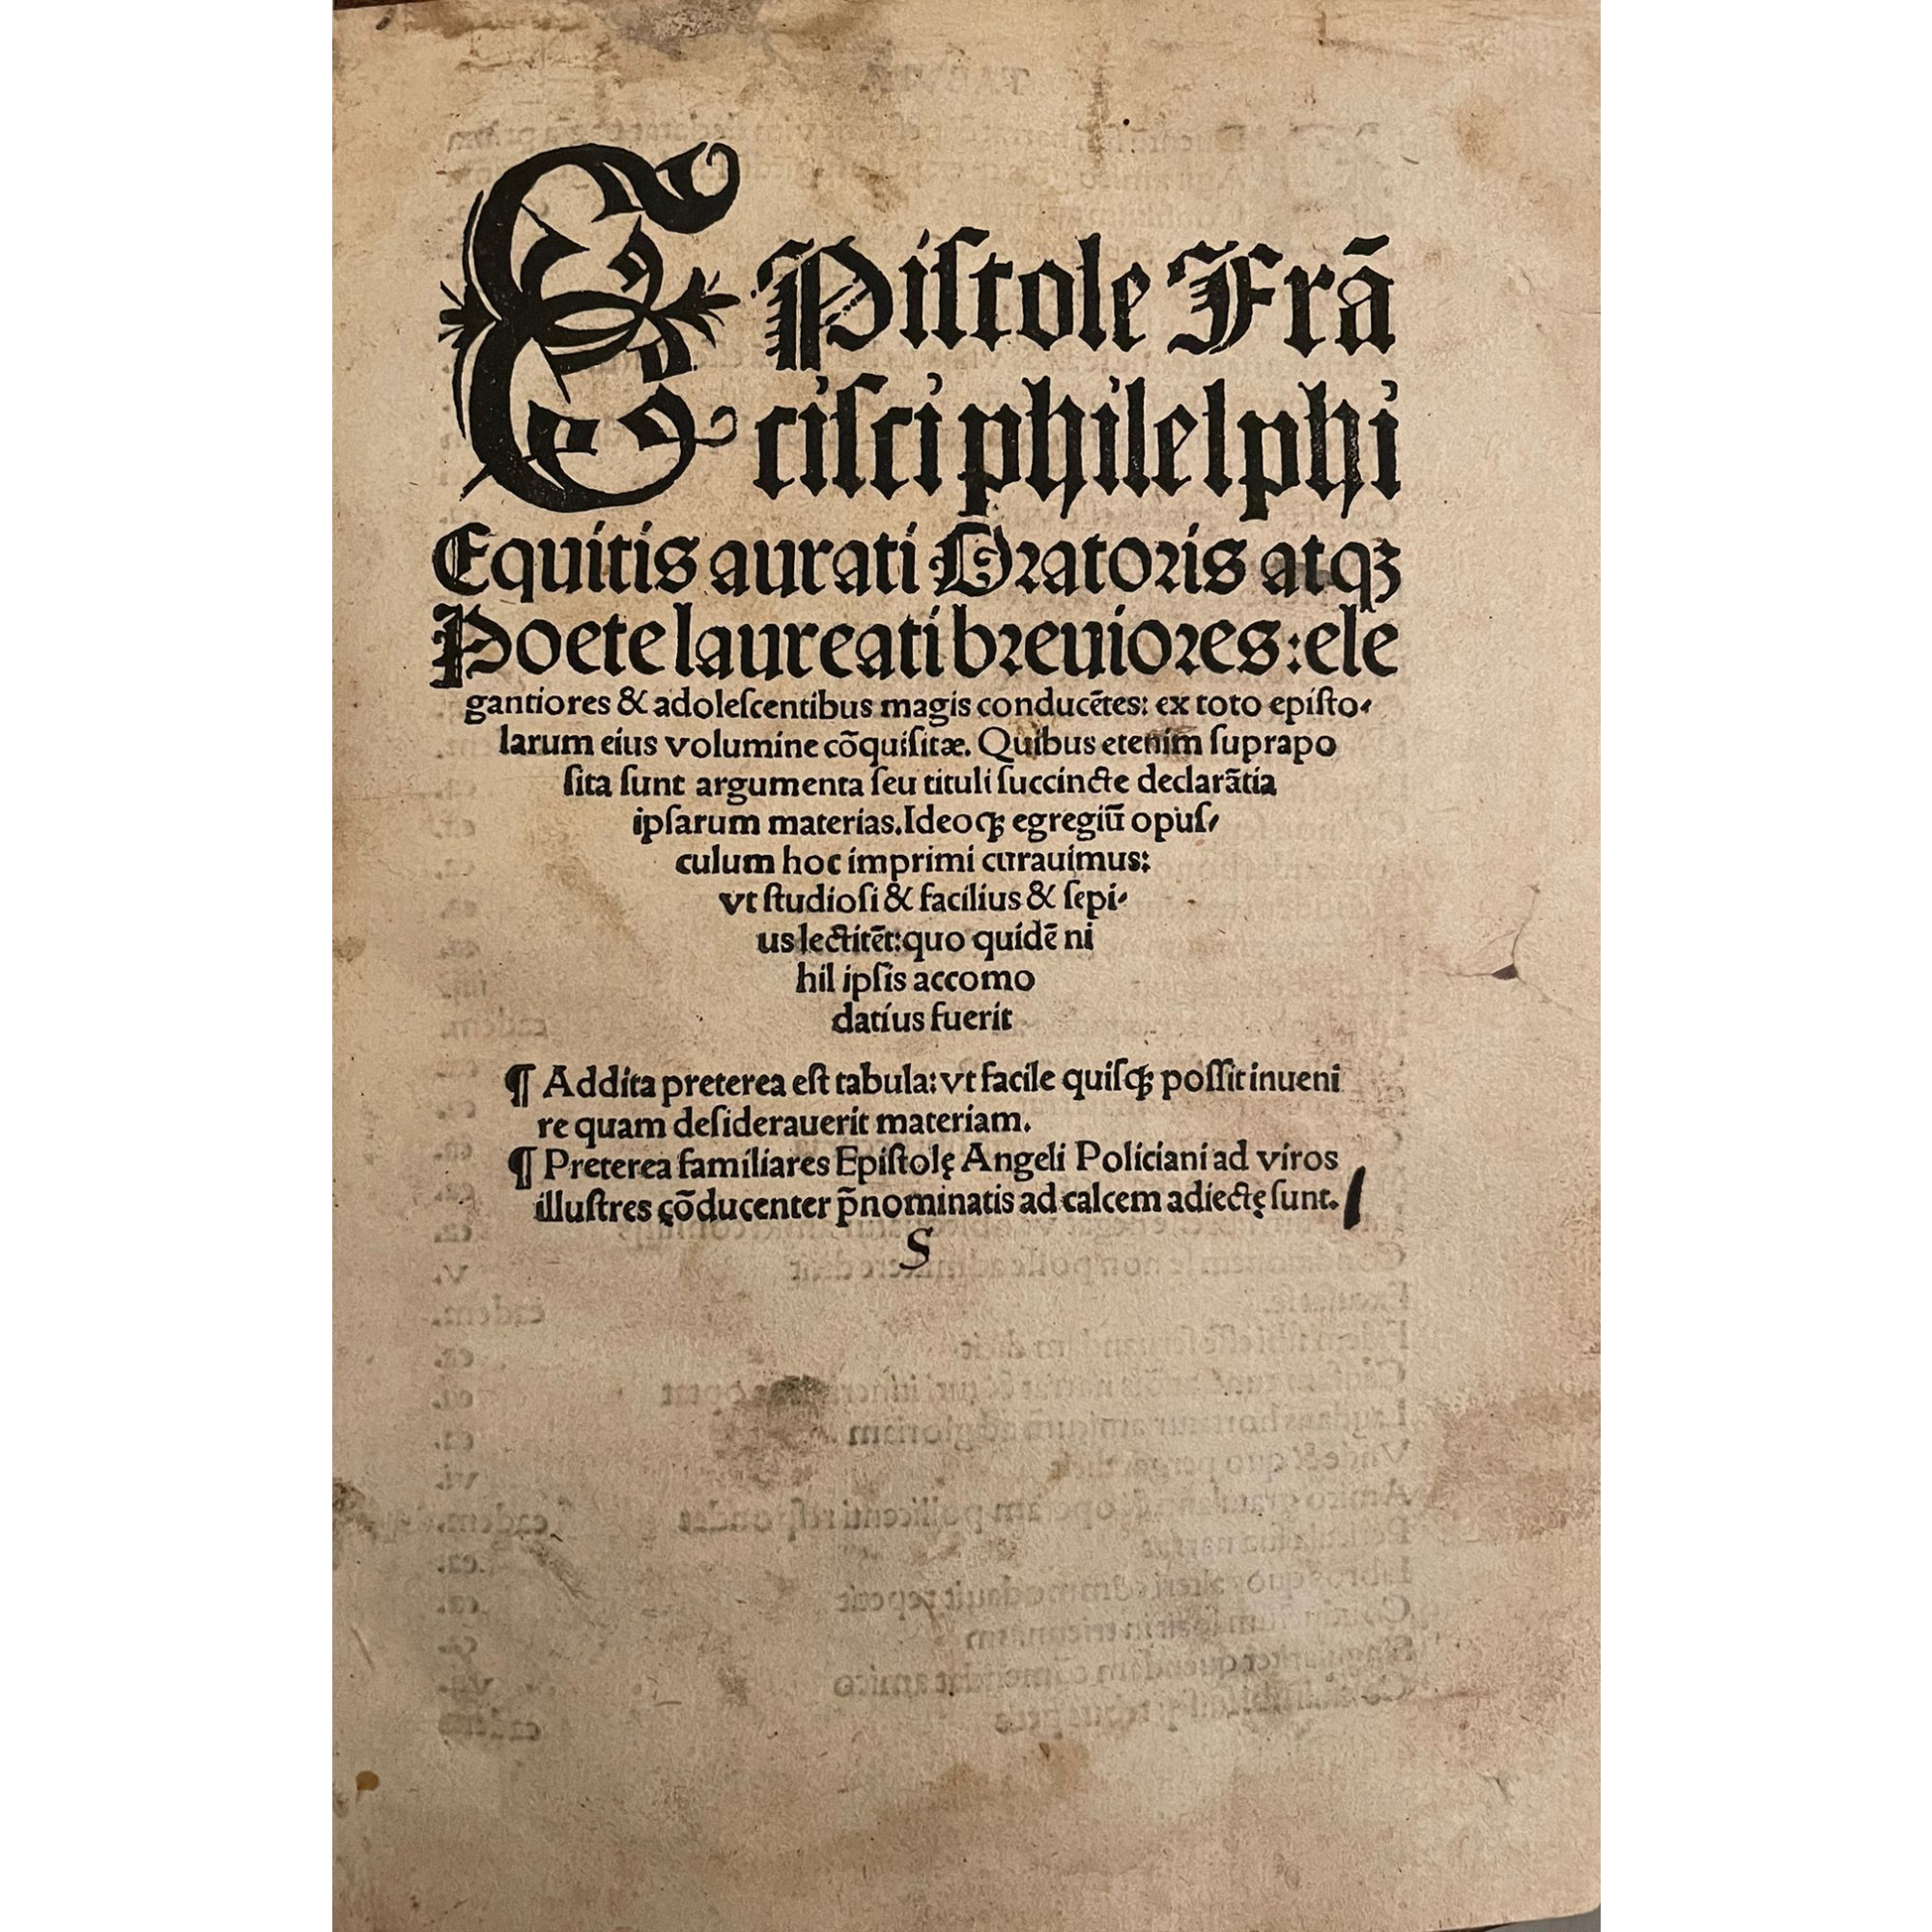 EPiſtole Frā
ciſci philelphi
Equitis aurati Oratoris atqꝫ
Poete laureati breuiores: ele
gantiores & adoleſcentibus magis conducētes: ex toto epiſto⸗
larum eius volumine cōquiſitæ. Quibus etenim ſuprapo
ſita ſunt argumenta ſeu tituli ſuccincte declarātia
ipſarum materias. Ideoqꝫ egregiū opuſ⸗
culum hoc imprimi curauimus:
vt ſtudioſi & facilius & ſepi⸗
us lectitēt: quo quidē ni
hil ipſis accomo
datius fuerit
¶ Addita preterea eſt tabula: vt facile quiſqꝫ poſſit inueni
re quam deſiderauerit materiam.
¶ Preterea familiares Epiſtolę Angeli Policiani ad viros
illuſtres cōducenter p̄nominatis ad calcem adiectę ſunt.
S